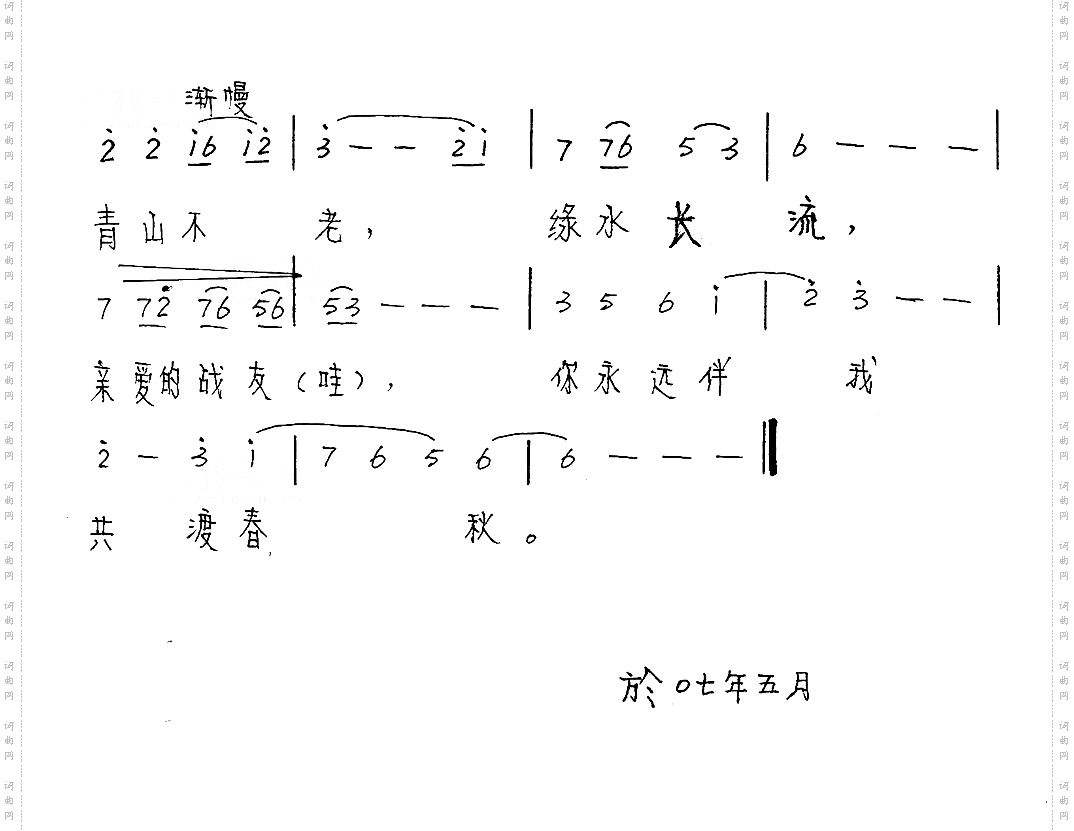 渐慢
2̇ 2̇ 1̇6 1̇2̇ | 3̇ — — 2̇1̇ | 7 76 5 3 | 6 — — — |
青山不 老， 绿水长 流，
7 72̇ 76 56 | 53 — — — | 3 5 6 1̇ | 2̇ 3̇ — — |
亲爱的战友（哇）， 你永远伴 我
2̇ — 3̇ 1̇ | 7 6 5 6 | 6 — — — ‖
共 渡春 秋。
於0七年五月
词曲网